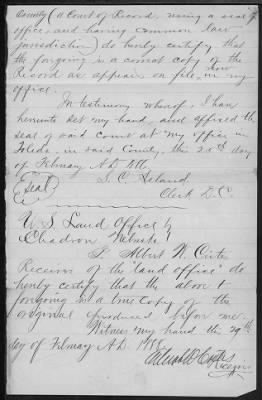 County (a Court of Record, using a seal of
office, and having common law
jurisdiction) do hereby certify that
the forgoing is a correct copy of the
Record as appears on file, now in my
office.
In testimony whereof, I have
hereunto set my hand, and affixed the
seal of said Court at my office in
Toledo, in said County, this day
of February A.D.
Seal
Clerk D.C.
U.S. Land Office
Chadron Nebraska
I, Albert W. Crites
Receiver of the "land office" do
hereby certify that the above &
forgoing is a true copy of the
original produced before me.
Witness my hand the 29th
day of February A.D. 1888
Albert W Crites
Receiver